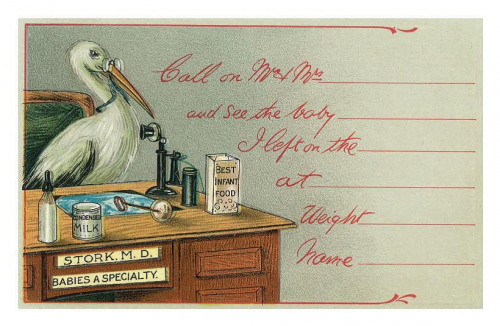 Call on Mr & Mrs
and see the baby
I left on the
at
Weight
Name
BEST
INFANT
FOOD
CONDENSED
MILK
STORK. M. D.
BABIES A SPECIALTY.